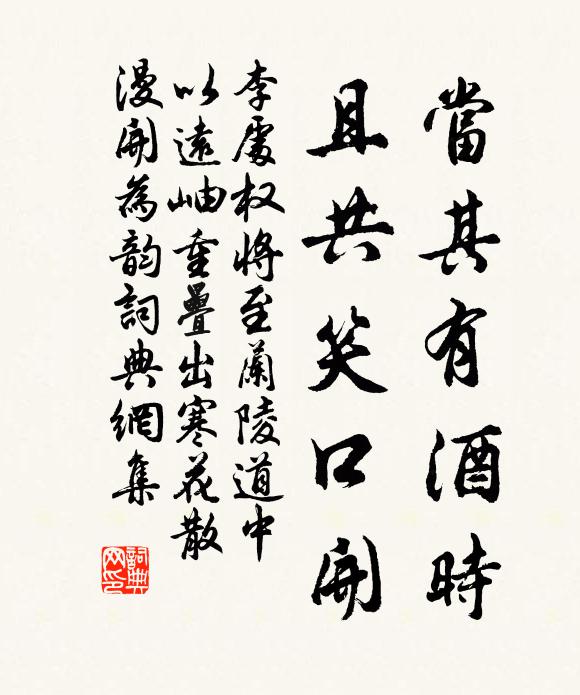 當其有酒時
且共笑口開
李處权將至蘭陵道中
以遠岫重疊出寒花散
漫開為韵詞典網集
詞典网印